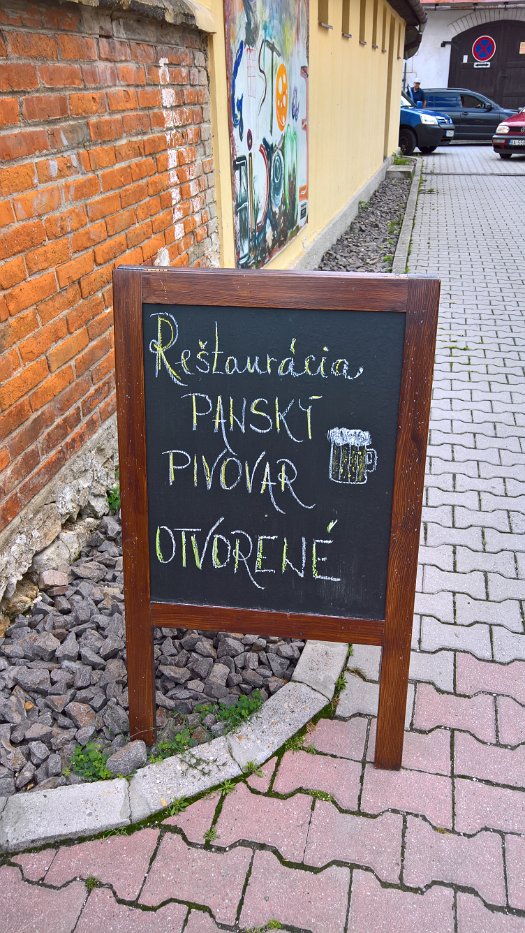 Reštaurácia
PANSKÝ
PIVOVAR
OTVORENÉ